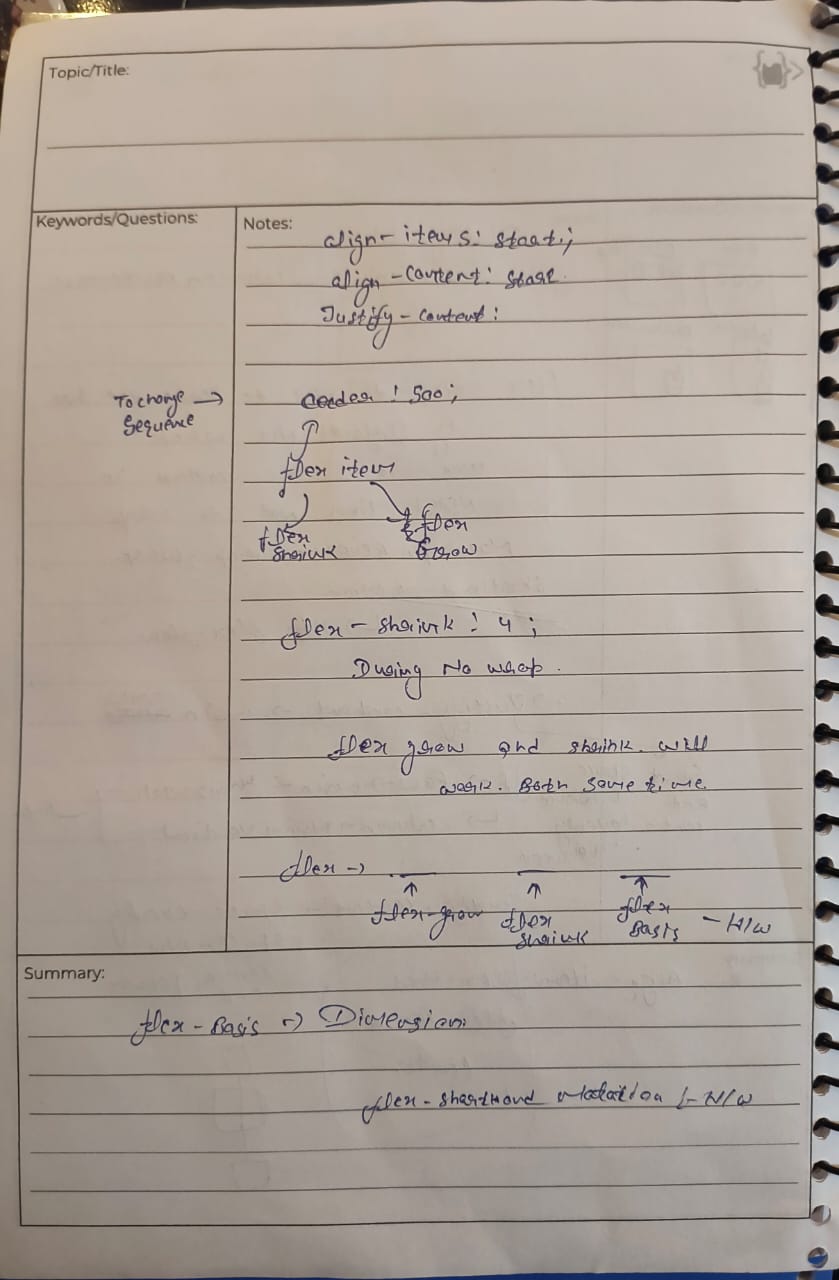 Topic/Title:
Keywords/Questions:
Notes:
align-items: start;
align-content: start
Justify-content:
To change →
Sequence
order: 500;
flex item
flex
Shrink
flex
Grow
flex-shrink: 4;
During No wrap.
flex grow and shrink will
work. Both same time.
flex →
flex-grow
flex
shrink
flex
Basis
- H/W
Summary:
flex-Basis → Dimension
flex-Shorthand Notation - H/W